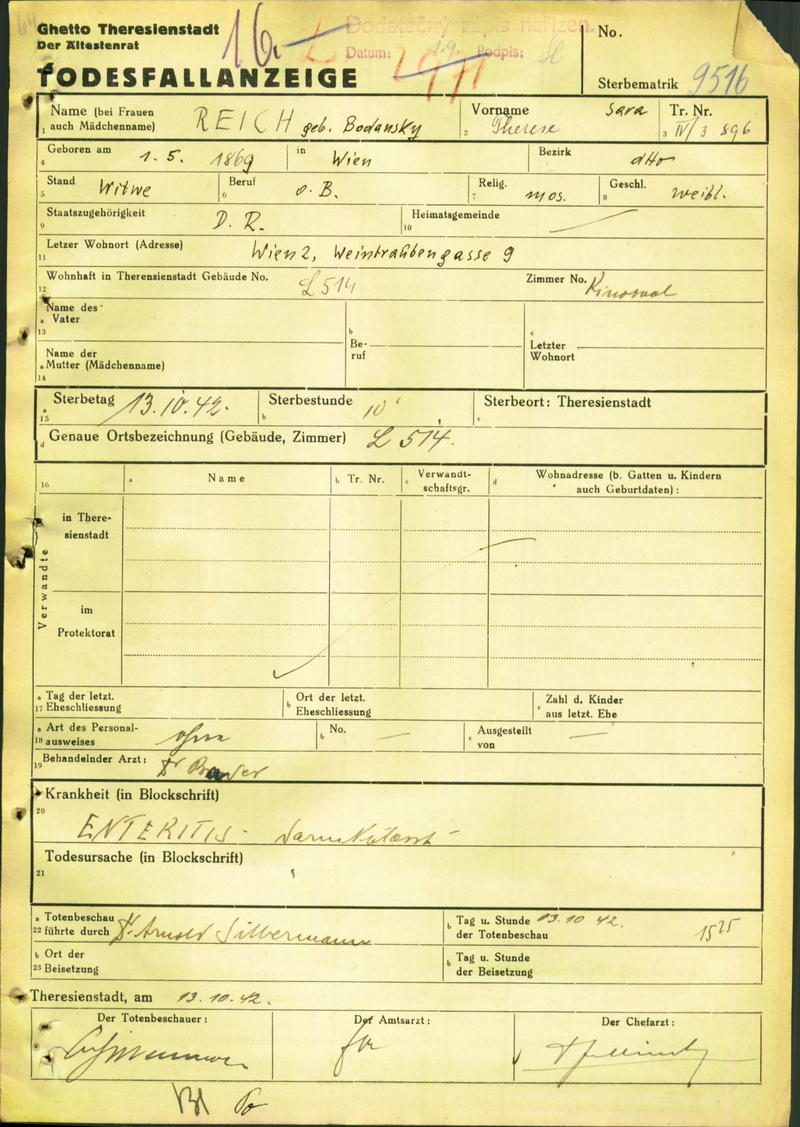 Ghetto Theresienstadt
Der Ältestenrat
TODESFALLANZEIGE
16.
Dodatečný zápis nařízen.
Datum: Podpis:
No.
Sterbematrik 9516
Name (bei Frauen REICH geb. Bodansky
1 auch Mädchenname)
Vorname Sara
2 Therese
Tr. Nr.
3 IV/3 896
Geboren am 1. 5. 1869 in Wien Bezirk dtto
4
Stand Witwe Beruf o. B. Relig. mos. Geschl. weibl.
5 6 7 8
Staatszugehörigkeit D. R. Heimatsgemeinde
9 10
Letzer Wohnort (Adresse) Wien 2, Weintraubengasse 9
11
Wohnhaft in Therensienstadt Gebäude No. L 514 Zimmer No. Kinosaal
12
Name des
a Vater
13
b Beruf
c Letzter Wohnort
Name der
a Mutter (Mädchenname)
14
Sterbetag 13.10.42. Sterbestunde 10 Sterbeort: Theresienstadt
a 15 b c
d Genaue Ortsbezeichnung (Gebäude, Zimmer) L 514.
16 a Name b Tr. Nr. c Verwandtschaftsgr. d Wohnadresse (b. Gatten u. Kindern
auch Geburtdaten) :
Verwandte
in Theresienstadt
im
Protektorat
a Tag der letzt.
17 Eheschliessung
b Ort der letzt.
Eheschliessung
c Zahl d. Kinder
aus letzt. Ehe
a Art des Personal- ohne
18 ausweises
b No. —
c Ausgestellt —
von
19 Behandelnder Arzt: Dr
Krankheit (in Blockschrift)
20
ENTERITIS - Darmkatarrh
Todesursache (in Blockschrift)
21
a Totenbeschau
22 führte durch Dr. Arnold Silbermann
b Tag u. Stunde 13.10 42. 15 25
der Totenbeschau
b Ort der
23 Beisetzung
b Tag u. Stunde
der Beisetzung
Theresienstadt, am 13.10.42.
Der Totenbeschauer :
Der Amtsarzt :
Der Chefarzt :